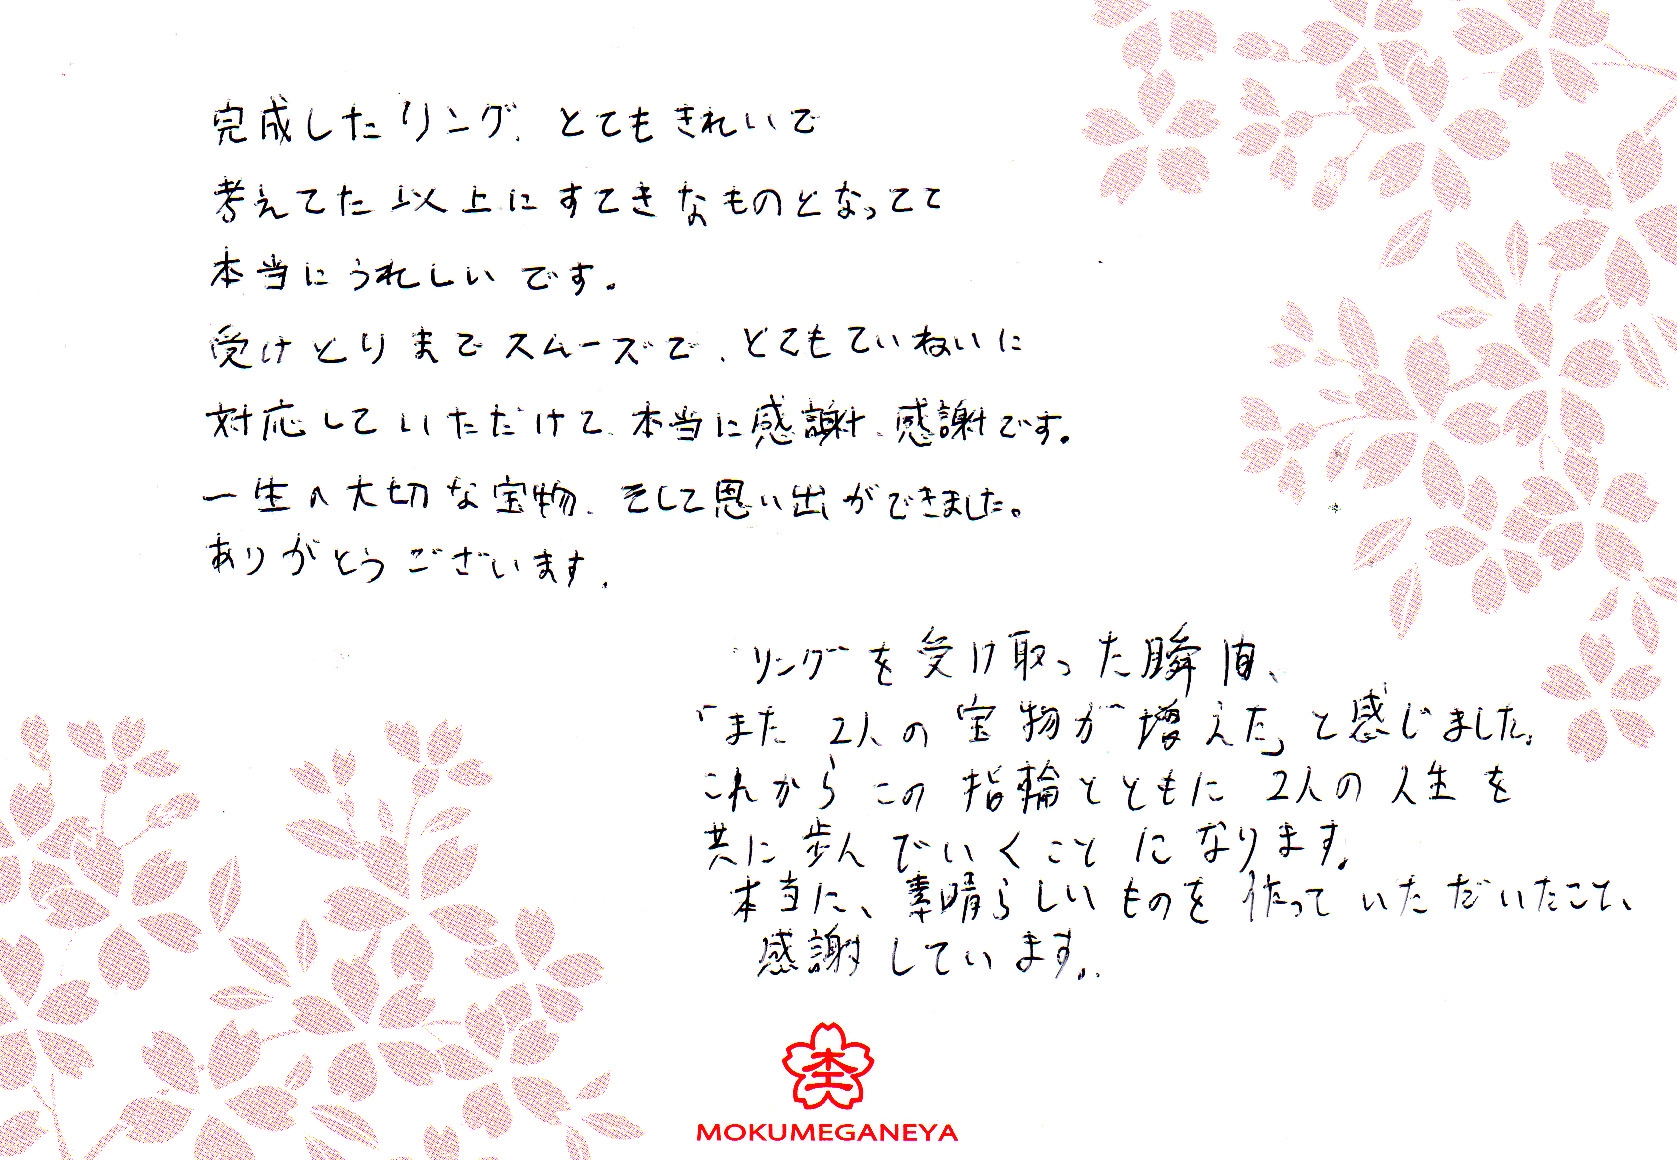 完成したリング、とてもきれいで
考えてた以上にすてきなものとなってて
本当にうれしいです。
受けとりまでスムーズで、とてもていねいに
対応していただけて、本当に感謝、感謝です。
一生の大切な宝物、そして思い出ができました。
ありがとうございます。
リングを受け取った瞬間、
「また2人の宝物が増えた」と感じました。
これからこの指輪とともに2人の人生を
共に歩んでいくことになります。
本当に、素晴らしいものを作っていただいたこと、
感謝しています。
MOKUMEGANEYA